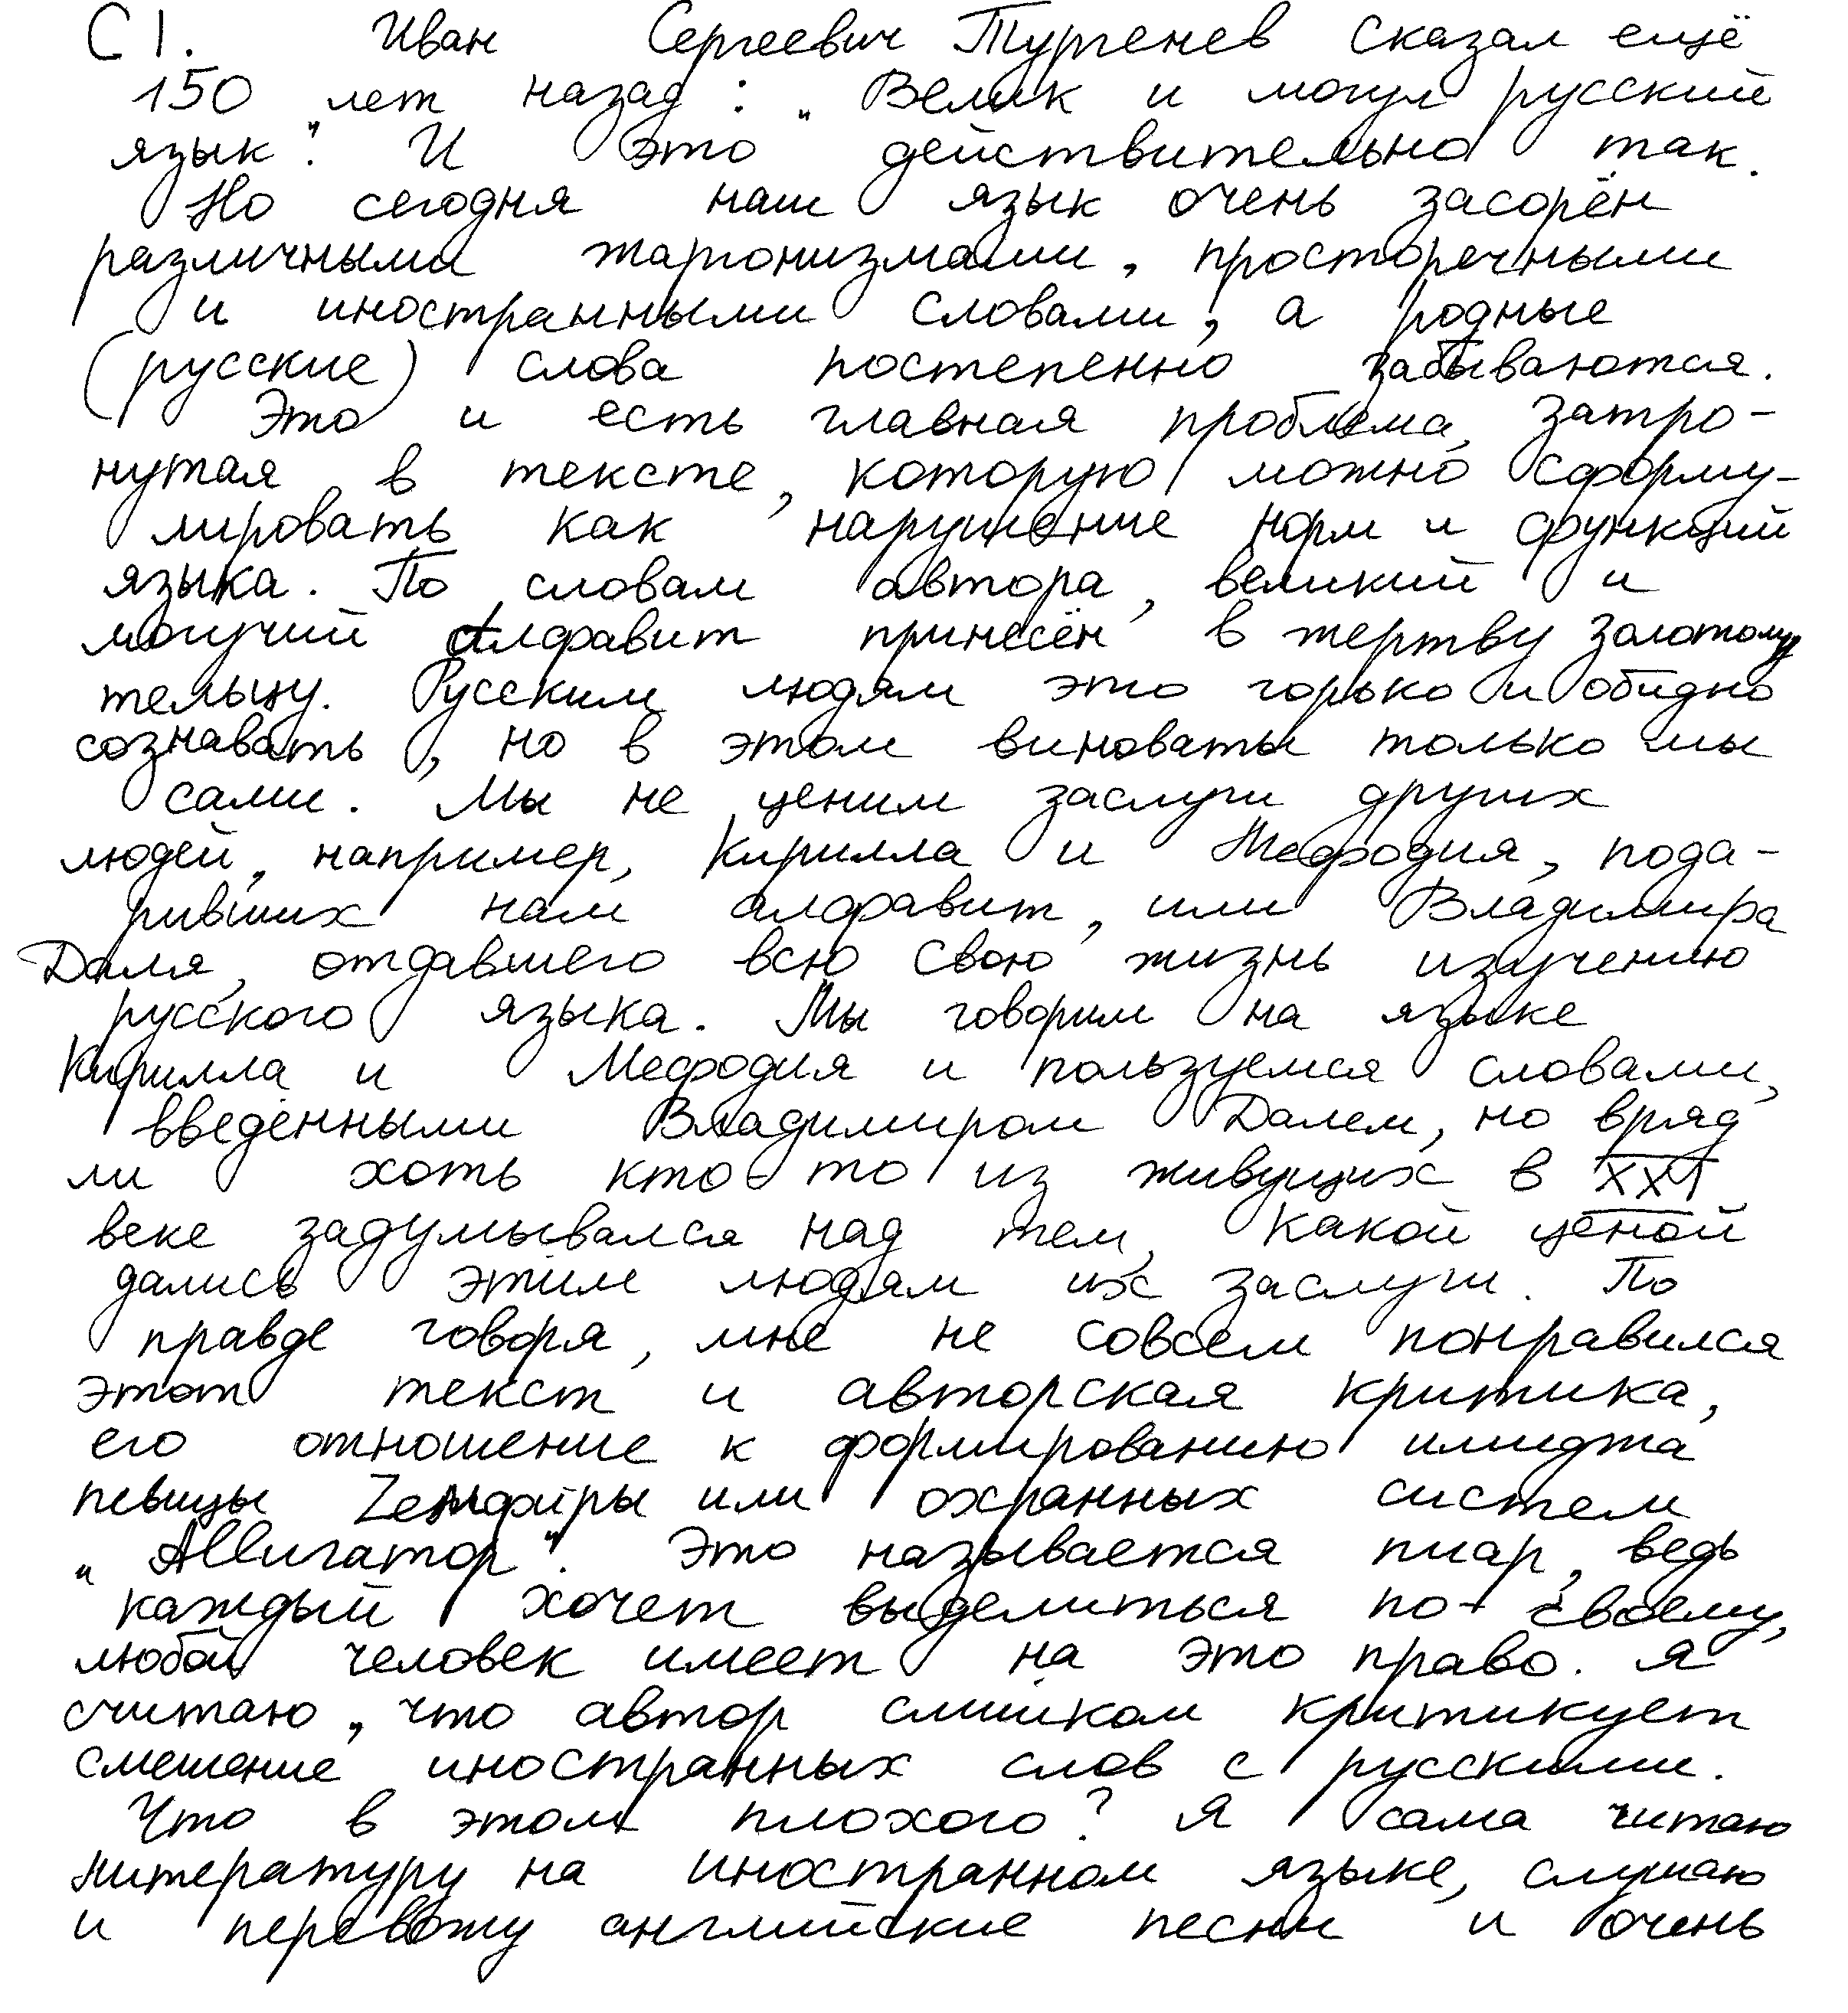 С1. Иван Сергеевич Тургенев сказал ещё
150 лет назад: „Велик и могуч русский
язык". И это действительно так.
Но сегодня наш язык очень засорён
различными жаргонизмами, просторечными
и иностранными словами, а родные
(русские) слова постепенно забываются.
Это и есть главная проблема, затро-
нутая в тексте, которую можно сформу-
лировать как нарушение норм и функций
языка. По словам автора, великий и
могучий алфавит принесён в жертву золотому
тельцу. Русским людям это горько и обидно
сознавать, но в этом виноваты только мы
сами. Мы не ценим заслуги других
людей, например, Кирилла и Мефодия, пода-
ривших нам алфавит, или Владимира
Даля, отдавшего всю свою жизнь изучению
русского языка. Мы говорим на языке
Кирилла и Мефодия и пользуемся словами,
введёнными Владимиром Далем, но вряд
ли хоть кто-то из живущих в XXI
веке задумывался над тем, какой ценой
дались этим людям их заслуги. По
правде говоря, мне не совсем понравился
этот текст и авторская критика,
его отношение к формированию имиджа
певицы Zемфiры или охранных систем
„Аllигатор". Это называется пиар, ведь
каждый хочет выделиться по-своему,
любой человек имеет на это право. Я
считаю, что автор слишком критикует
смешение иностранных слов с русскими.
Что в этом плохого? Я сама читаю
литературу на иностранном языке, слушаю
и перевожу английские песни и очень